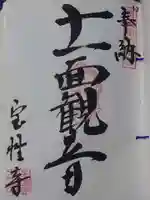 奉拝
十一面観音
宝性寺